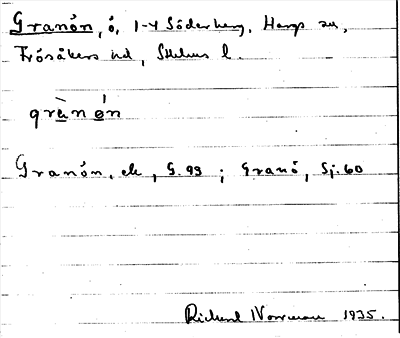 Granön, ö, 1-4 Söderberg, Hargs sn,
Frösåkers hd, Sthlms l.
grànǿn
Granön, ek, G. 93 ; Granö, Sj. 60
Rickard Norrman 1935.